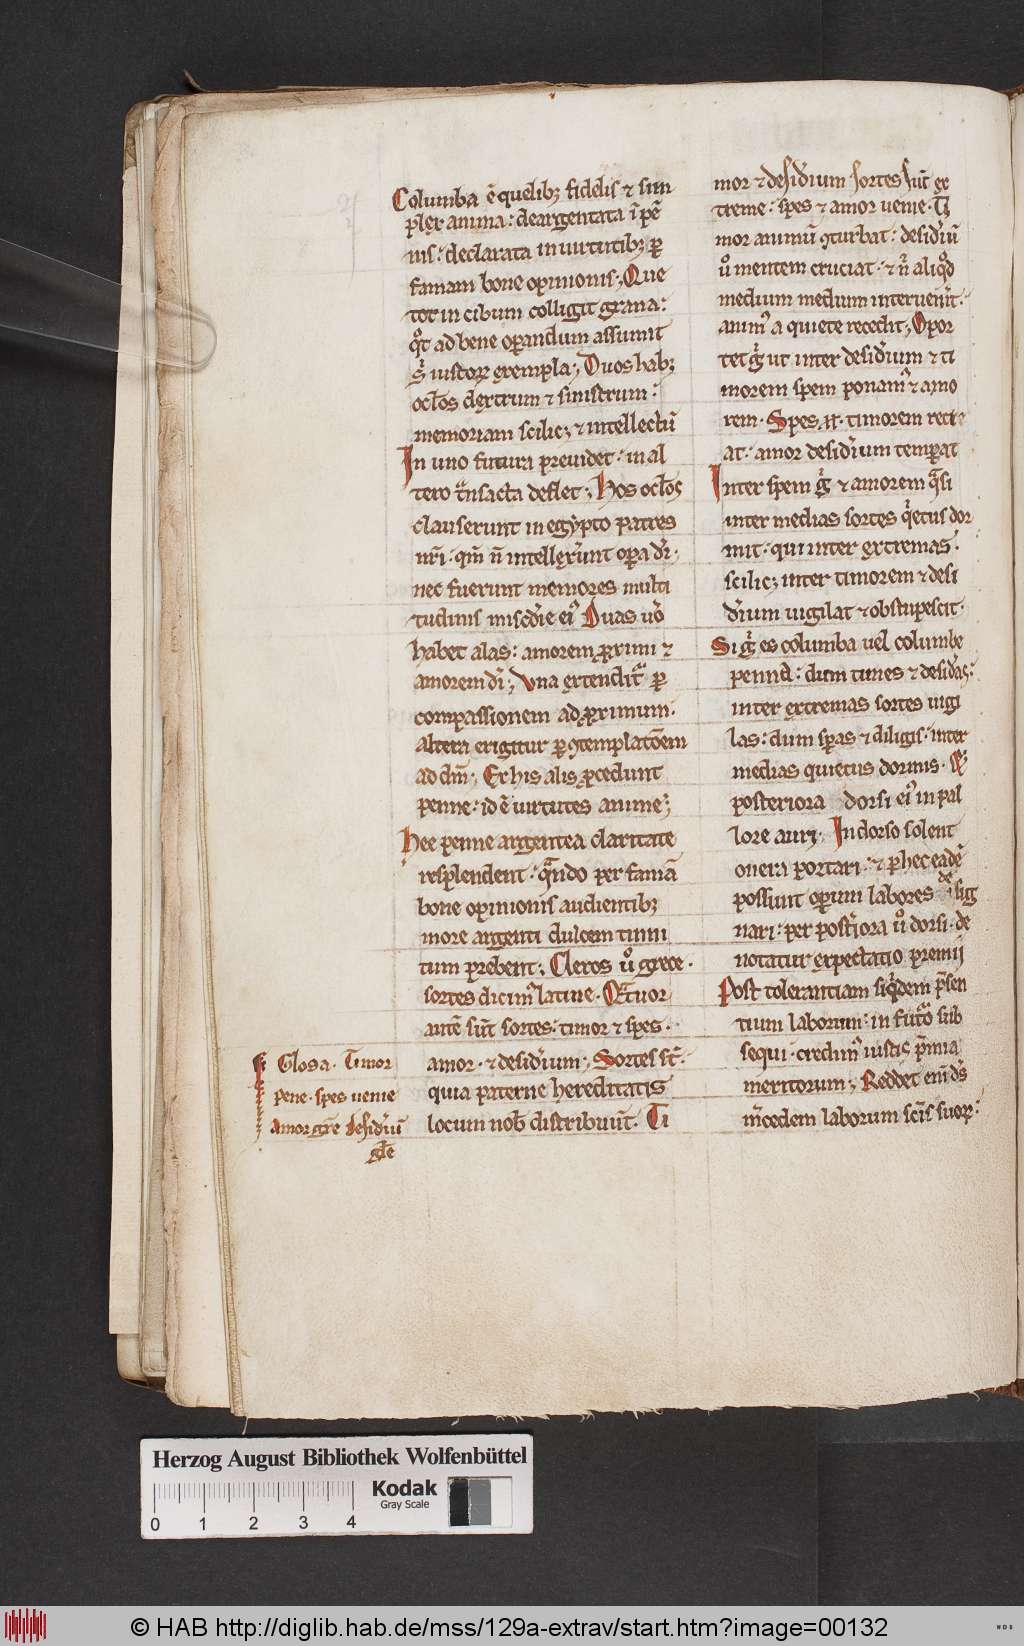 Columba ē quelibꝫ fidelis ⁊ sim
plex anima: deargentata ī pē
nis: declarata in uirtutibꝫ ꝑ
famam bone opinionis; Que
tot in cibum colligit grana:
qͦt ad bene oꝑandum assumit
sͥ iustoꝝ exempla; Duos habꝫ
oclos dextrum ⁊ sinistrum:
memoriam scilicꝫ ⁊ intellectū
In uno futura preuidet: in al
tero tͣnsacta deflet; Hos oclos
clauserunt in egypto patres
nr̄i· qm̄ n̄ intellexer̄unt oꝑa dī·
nec fuerunt memores multi
tudinis mis̄cdie eiꝰ Duas uͦ
habet alas: amorem ꝓximi ⁊
amorem dī; Vna extenditͬ ꝑ
compassionem ad ꝓximum·
altera erigitur ꝑ ꝯtemplatōem
ad dm̄; Ex his alis ꝓcedunt
penne: id ē uirtutes anime;
Hee penne argentea claritate
resplendent: qͣndo per famā
bone opinionis audientibꝫ
more argenti dulcem tinni
tum prebent; Cleros uͦ grece·
sortes dicimꝰ latine· Qͣtuor
autē sūt sortes: timor ⁊ spes·
amor· ⁊ desid̄ium; Sortes st̄·
quia paterne hereditatis
locum nob̄ distribuūt· Ti
Glosa· Timor
pene· spes uenie
amor gr̄e desid̄iū
gl̄e
mor ⁊ desid̄ium sortes sūt ex
treme: spes ⁊ amor medie· Ti
mor animū ꝯturbat: desid̄iū
uͦ mentem cruciat· ⁊ nͥ aliqͦd
medium medium interuenīt·
animꝰ a quiete recedit; Opor
tet gͥ ut inter desid̄ium ⁊ ti
morem spem ponamꝰ ⁊ amo
rem· Spes n̄· timorem recre
at· amor desid̄ium temꝑat
Inter spem gͥ ⁊ amorem qͣsi
inter medias sortes qͥetus dor
mit· qui inter extremas·
scilicꝫ inter timorem ⁊ desi
d̄ium uigilat ⁊ obstupescit·
Si gͥ es columba uel columbe
penna: dum times ⁊ desid̄as:
inter extremas sortes uigi
las: dum sꝑas ⁊ diligis: inter
medias quietus dormis·
posteriora dorsi eiꝰ in pal
lore auri· In dorso solent
onera portari· ⁊ ꝑ hec eadē
possunt oꝑum labores desig
nari: per post̄iora uͦ dorsi· de
notatur expectatio premij
Post tolerantiam siqͥdem p̄sen
tium laborum: in futͦo sub
sequi· credimꝰ iustis p̄mia
meritorum; Reddet eni ds̄
m̄cedem laborum scīs suoꝝ:
Herzog August Bibliothek Wolfenbüttel
Kodak
Gray Scale
0 1 2 3 4
© HAB http://diglib.hab.de/mss/129a-extrav/start.htm?image=00132